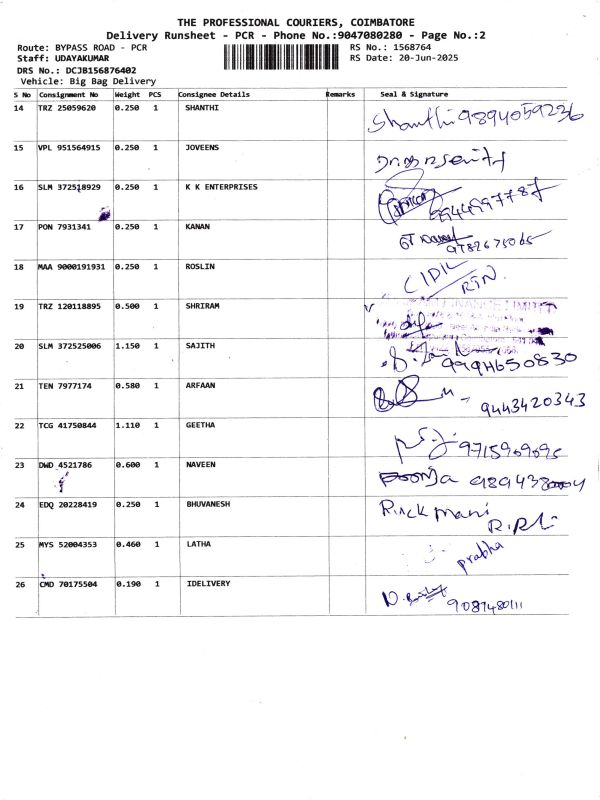 THE PROFESSIONAL COURIERS, COIMBATORE
Delivery Runsheet - PCR - Phone No.:9047080280 - Page No.:2
Route: BYPASS ROAD - PCR RS No.: 1568764
Staff: UDAYAKUMAR RS Date: 20-Jun-2025
DRS No.: DCJB156876402
Vehicle: Big Bag Delivery
S No Consignment No Weight PCS Consignee Details Remarks Seal & Signature
14 TRZ 25059620 0.250 1 SHANTHI Shanthi 9894059236
15 VPL 951564915 0.250 1 JOVEENS
16 SLM 372518929 0.250 1 K K ENTERPRISES
17 PON 7931341 0.250 1 KANAN
18 MAA 9000191931 0.250 1 ROSLIN
19 TRZ 120118895 0.500 1 SHRIRAM
20 SLM 372525006 1.150 1 SAJITH 9994650830
21 TEN 7977174 0.580 1 ARFAAN 9443420343
22 TCG 41750844 1.110 1 GEETHA 9715909095
23 DWD 4521786 0.600 1 NAVEEN
24 EDQ 20228419 0.250 1 BHUVANESH
25 MYS 52004353 0.460 1 LATHA prabha
26 CMD 70175504 0.190 1 IDELIVERY